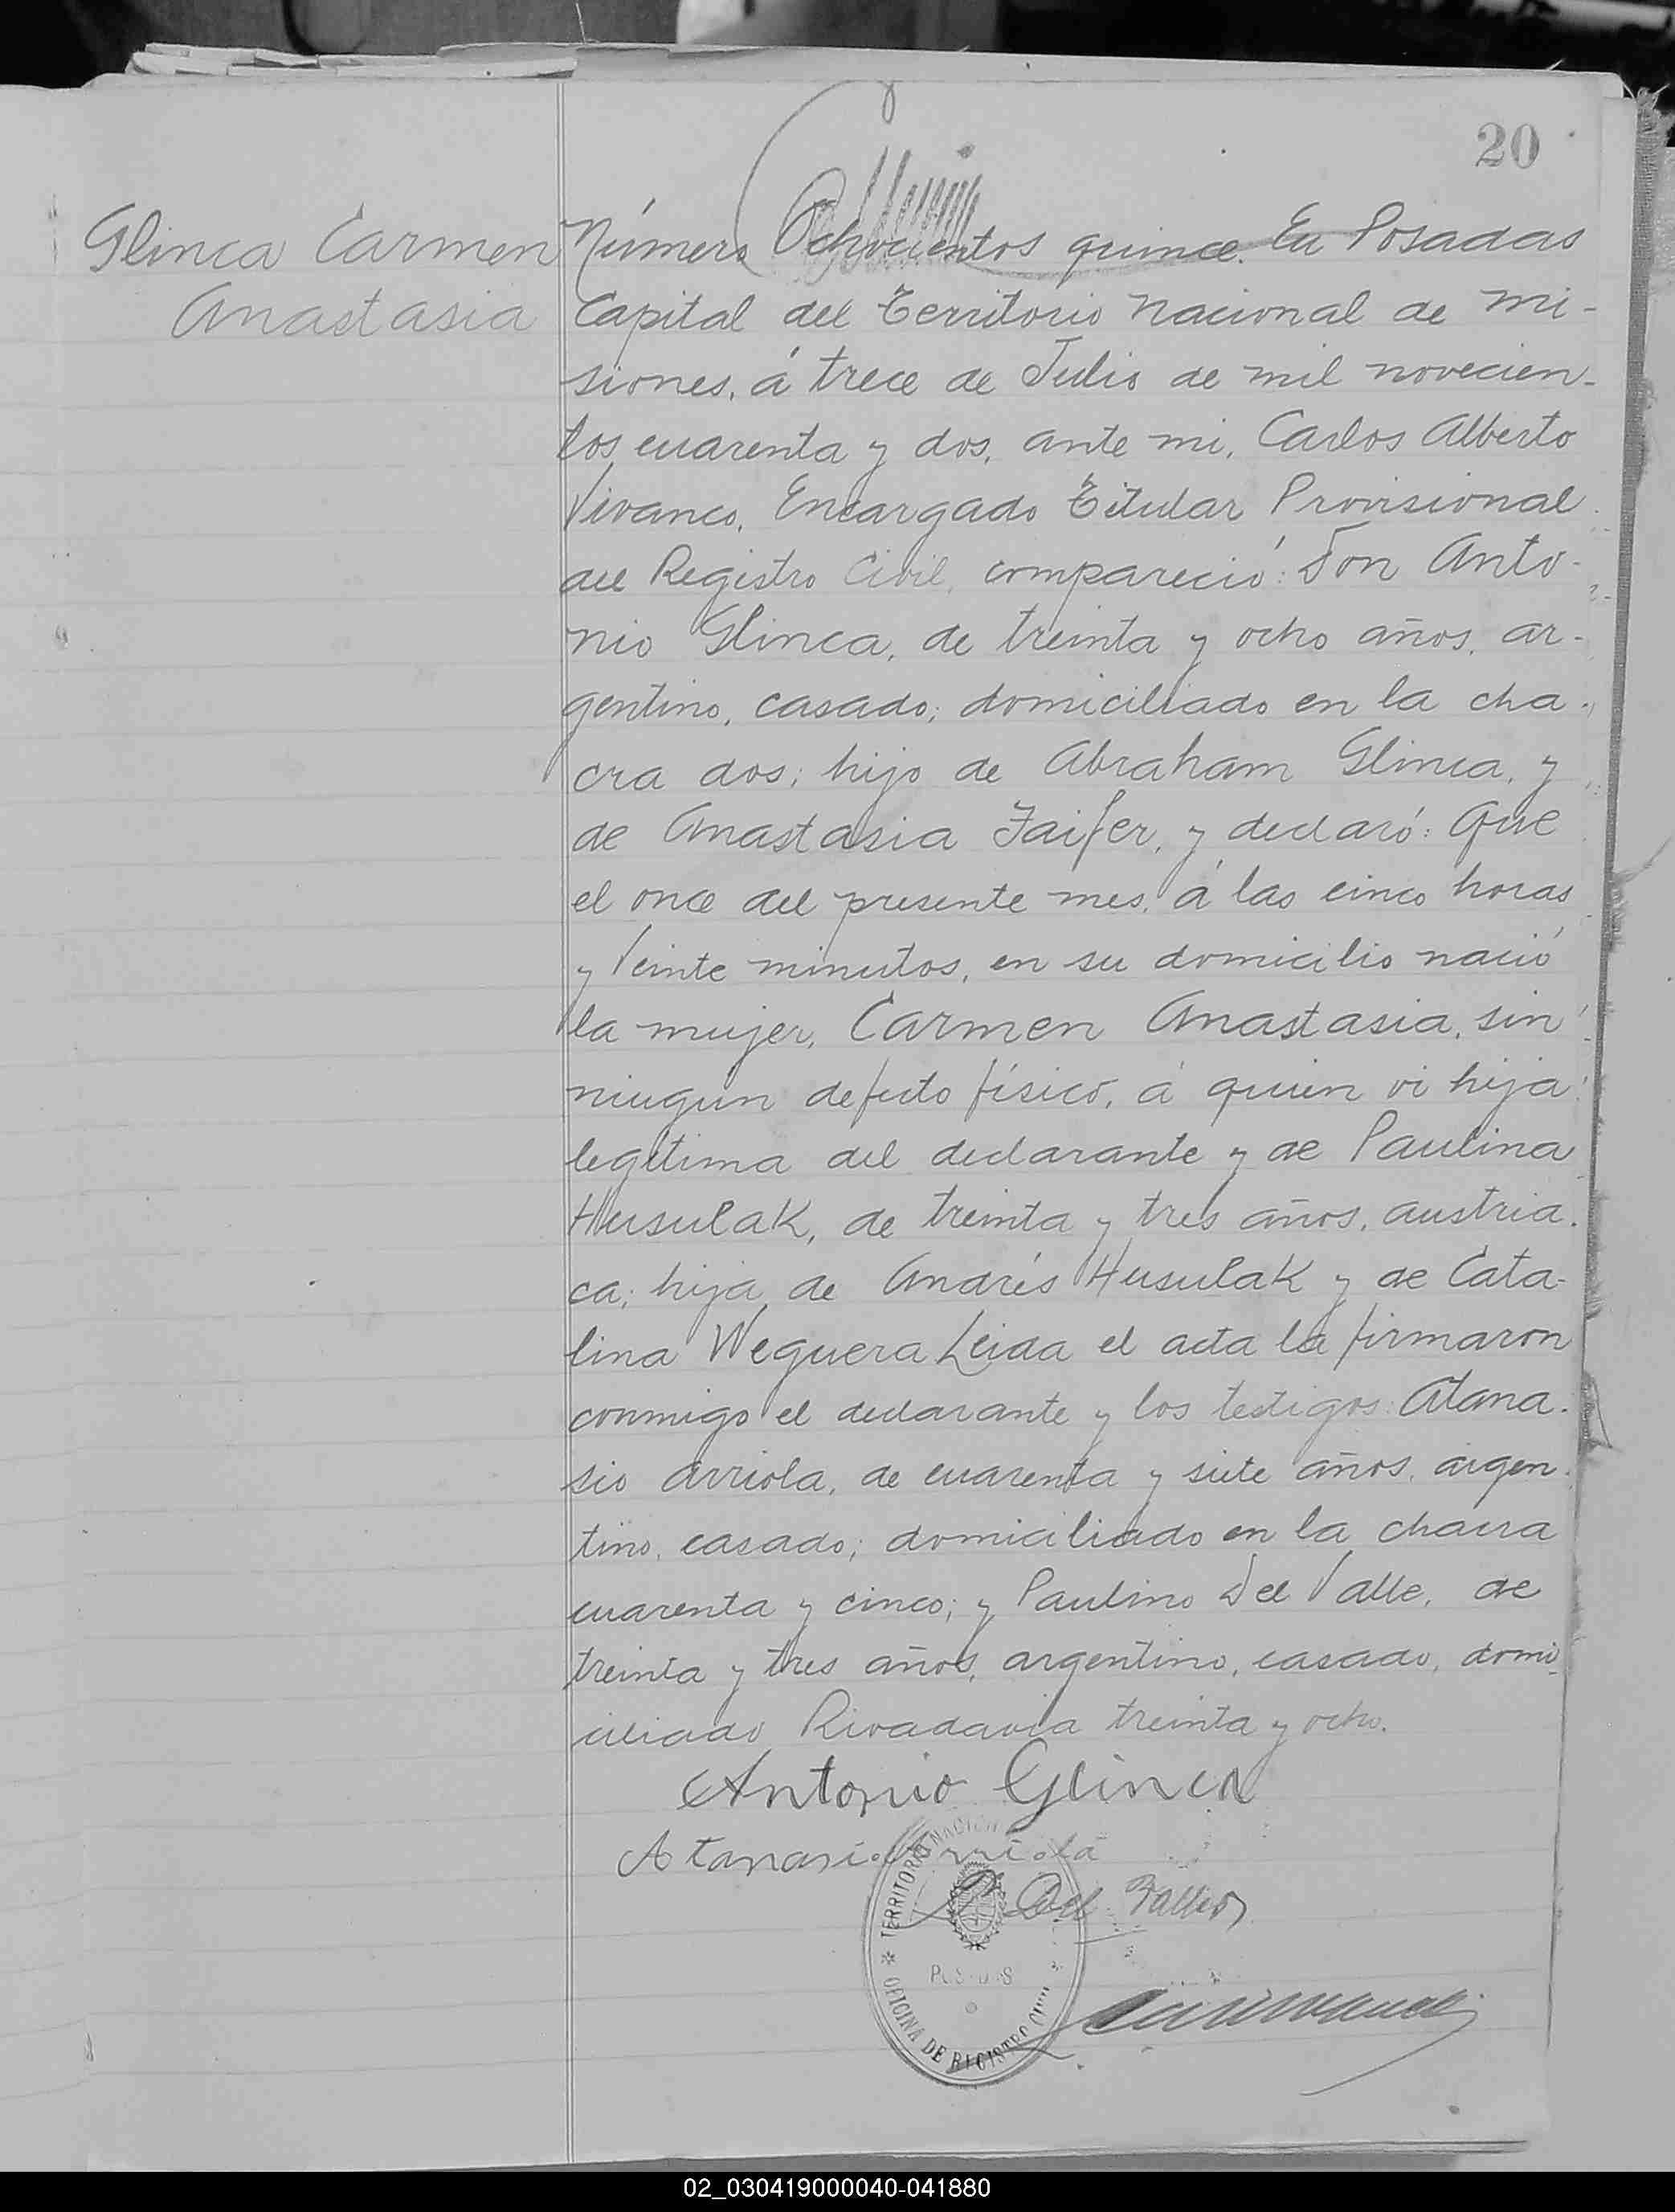 20
Glinca Carmen
Anastasia
Número Ochocientos quince. En Posadas
Capital del Territorio Nacional de Mi-
siones, á trece de Julio de mil novecien-
tos cuarenta y dos, ante mi, Carlos Alberto
Vivanco, Encargado Titular Provisional
del Registro Civil, compareció: Don Anto-
nio Glinca, de treinta y ocho años, ar-
gentino, casado; domiciliado en la cha-
cra dos; hijo de Abraham Glinca, y
de Anastasia Faifer, y declaró: Que
el once del presente mes, á las cinco horas
y veinte minutos, en su domicilio nació
la mujer, Carmen Anastasia, sin
ningun defecto físico, á quien vi hija
legítima del declarante y de Paulina
Husulak, de treinta y tres años, austria-
ca; hija de Andrés Husulak y de Cata-
lina Weguera Leida el acta la firmaron
conmigo el declarante y los testigos: Atana-
sio Arriola, de cuarenta y siete años, argen-
tino, casado; domiciliado en la chacra
cuarenta y cinco; y Paulino Del Valle, de
treinta y tres años, argentino, casado, domi-
ciliado Rivadavia treinta y ocho.
Antonio Glinca
Atanasio Arriola
P. Del Valle
TERRITORIO NACION
POSADAS
OFICINA DE REGISTRO CIVIL
02_030419000040-041880